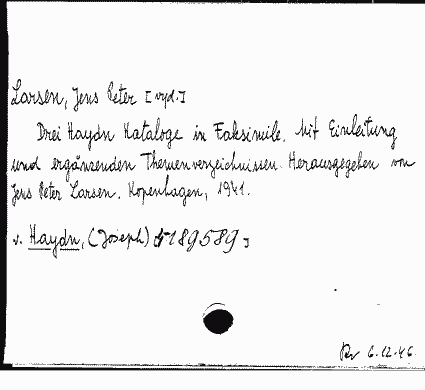 Larsen, Jens Peter [vyd.]
Drei Haydn Kataloge in Faksimile. Mit Einleitung
und ergänzenden Themenverzeichnissen. Herausgegeben von
Jens Peter Larsen. Kopenhagen, 1941.
v. Haydn, (Joseph) 189589]
6.12.46